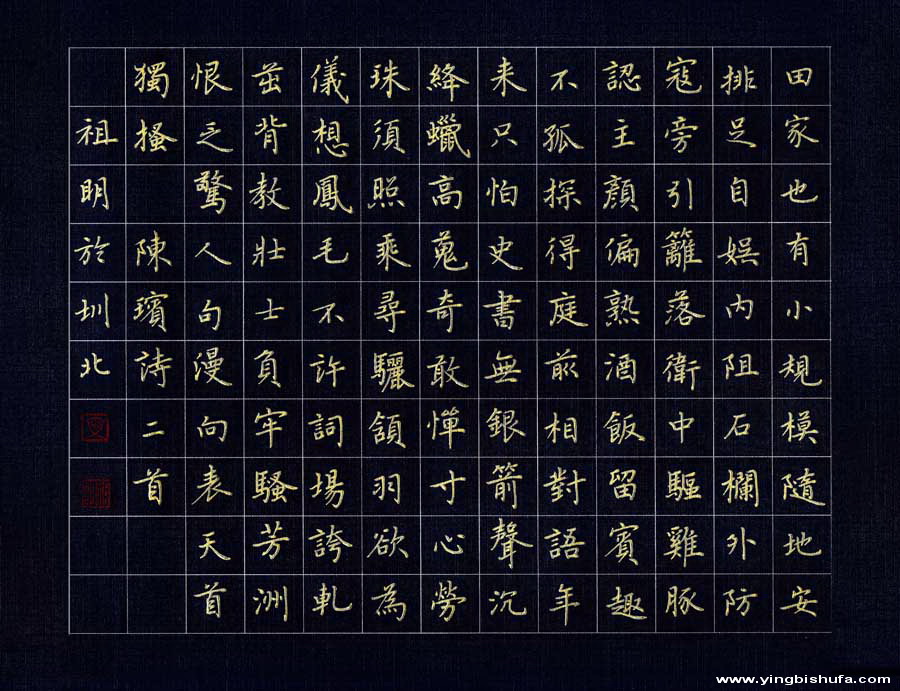 田家也有小規模隨地安
排足自娛內阻石欄外防
寇旁引籬落衛中驅雞豚
認主顏偏熟酒飯留賓趣
不孤探得庭前相對語年
来只怕史書無銀箭聲沉
絳蠟高蒐奇敢憚寸心勞
珠須照乘尋驪頷羽欲為
儀想鳳毛不許詞場誇軋
茁背教壯士負牢騷芳洲
恨乏驚人句漫向表天首
獨搔 陳璸詩二首
祖明於圳北
www.yingbishufa.com